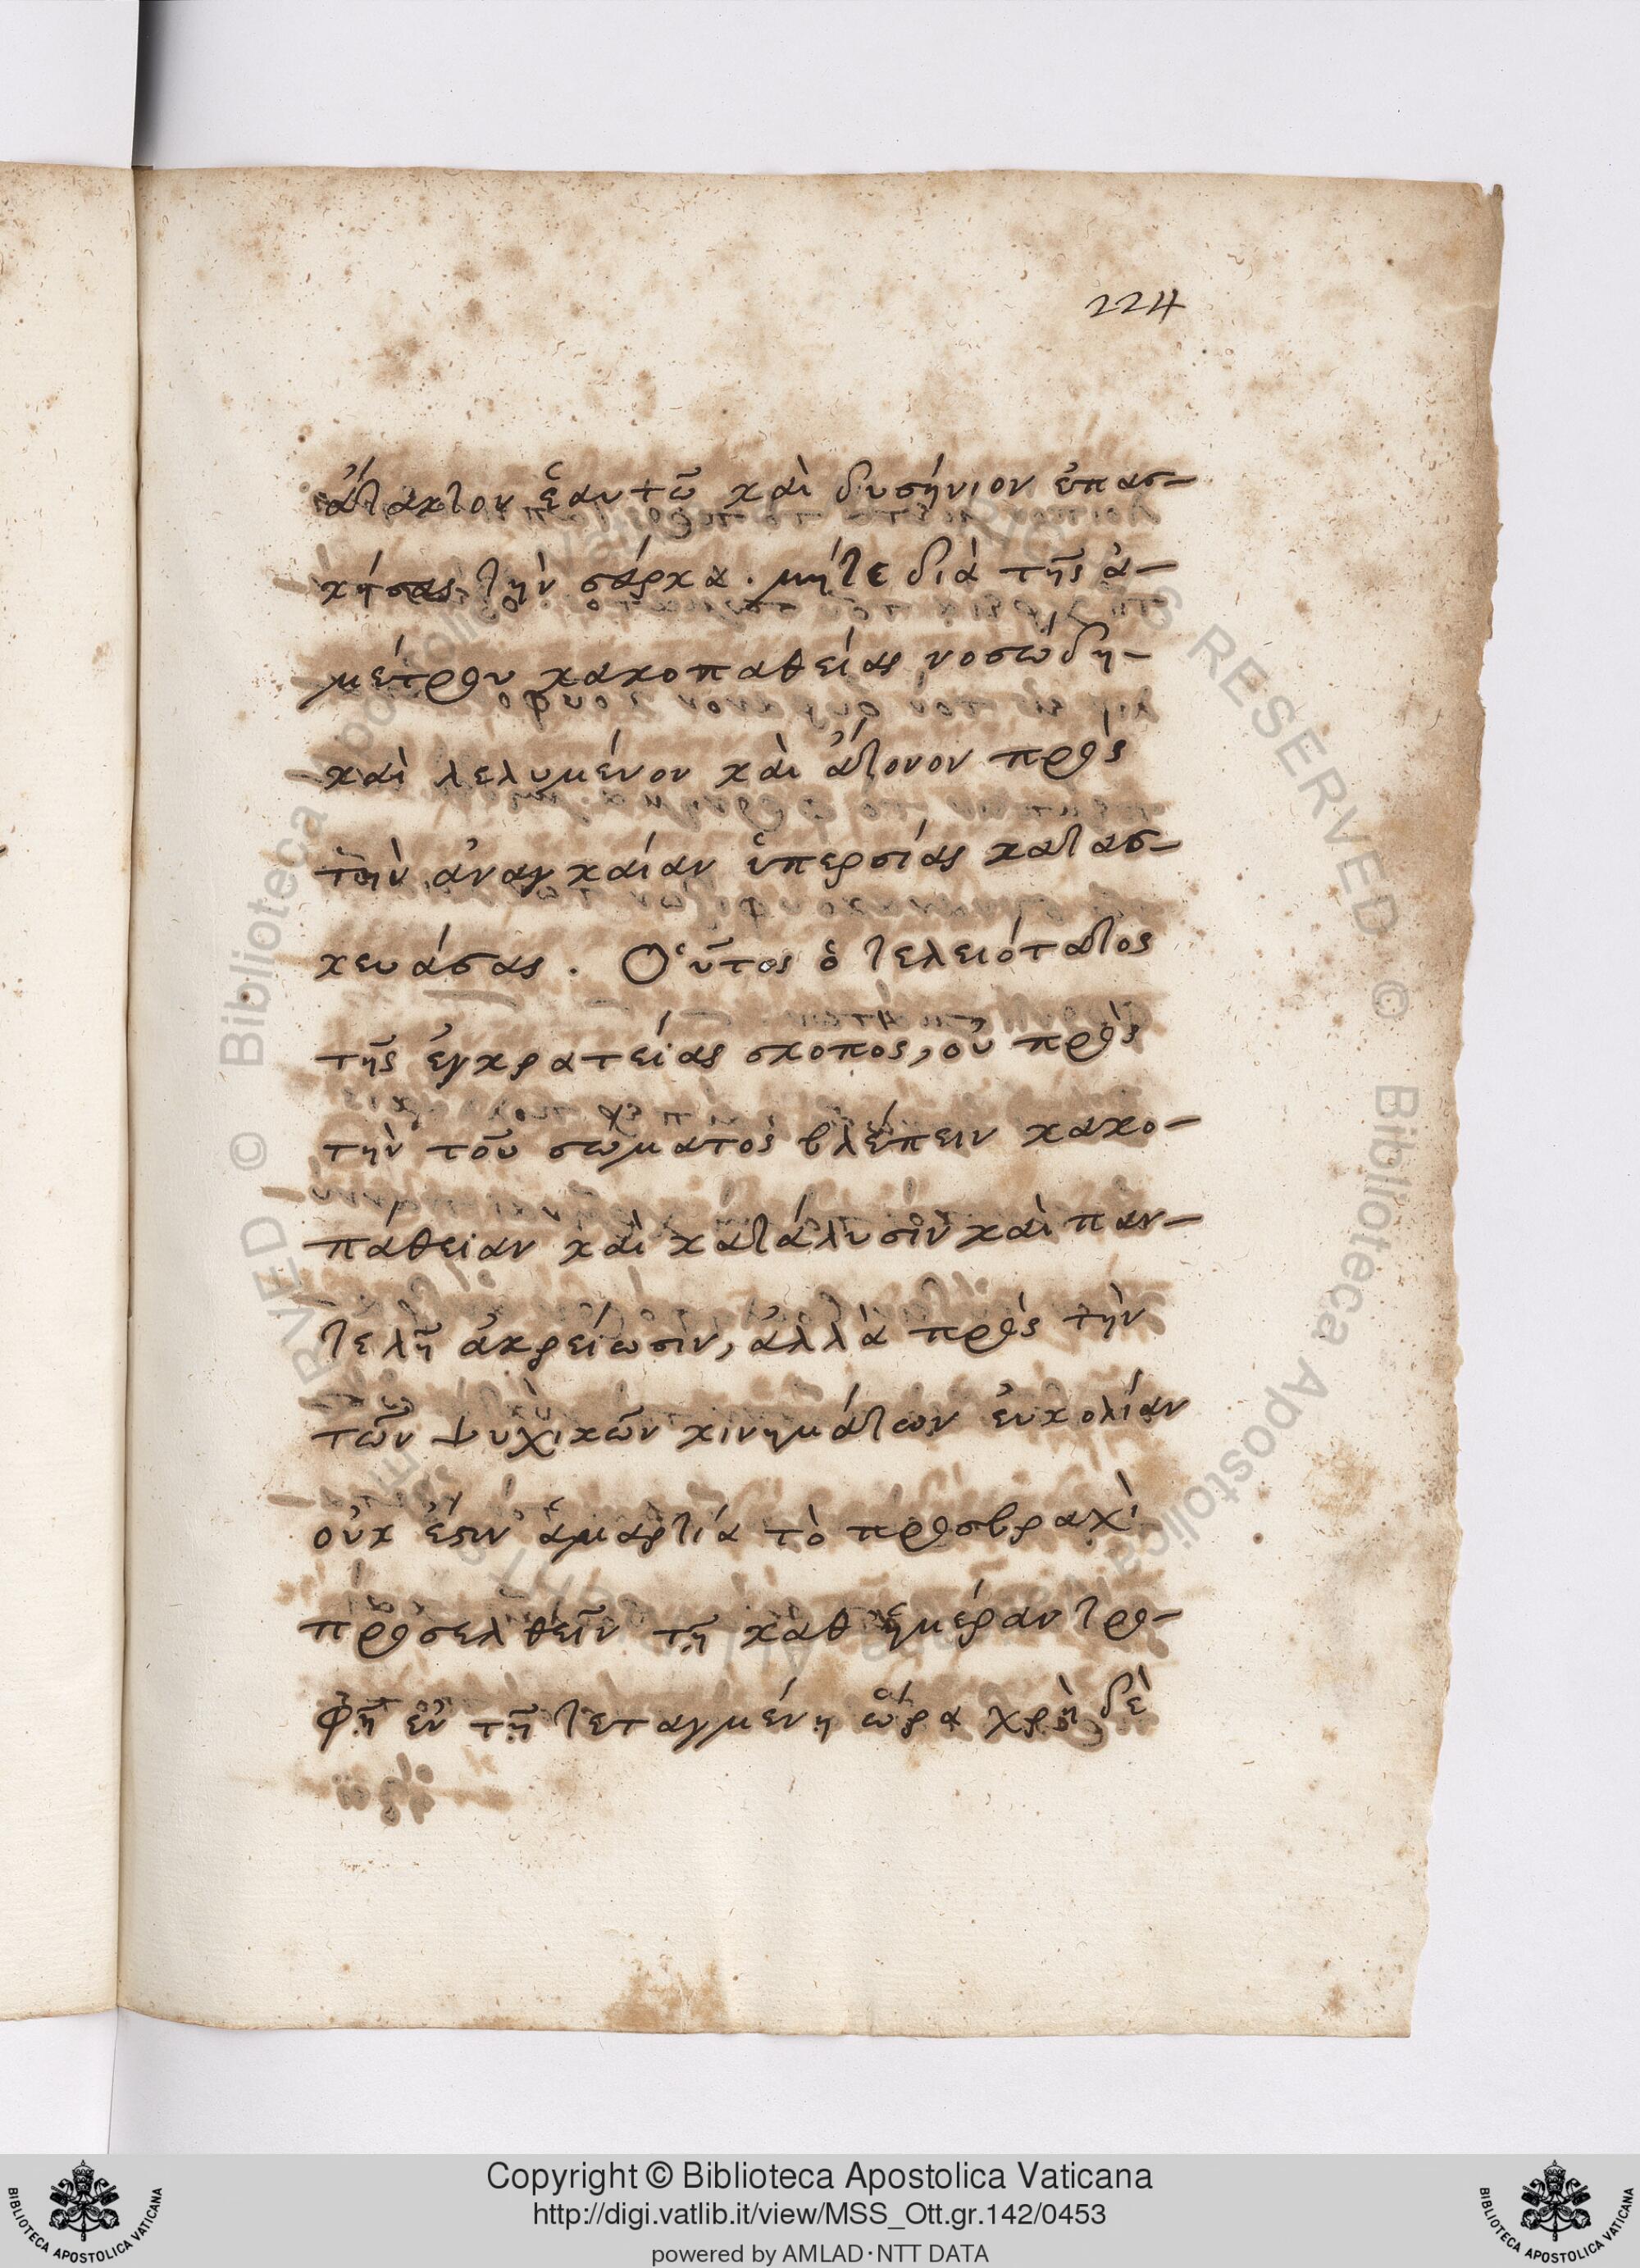 224
ἄτακτον ἑαυτῶ καὶ δυσήνιον ἐπασ-
κήσας τὴν σάρκα. μήτε διὰ τῆς ἀ-
μέτρου κακοπαθείας νοσώδη-
καὶ λελυμένον καὶ ἄτονον πρὸς
τὴν ἀναγκαίαν ὑπερσίας κατασ-
κευάσας. Οὗτος ὁ τελειότατος
τῆς ἐγκρατείας σκοπὸς, οὐ πρὸς
τὴν τοῦ σώματος βλέπειν κακο-
πάθειαν καὶ κατάλυσιν καὶ παν-
τελῆ ἀχρείωσιν, ἀλλὰ πρὸς τὴν
τῶν ψυχικῶν κινημάτων εὐκολίαν
οὐκ ἔστιν ἁμαρτία τὸ προσβραχὶ
προσελθεῖν τῆ καθ ἡμέραν τρο-
φῆ ἐν τῆ τεταγμένη ὥρα χρὴ δὲ
Copyright © Biblioteca Apostolica Vaticana
http://digi.vatlib.it/view/MSS_Ott.gr.142/0453
powered by AMLAD·NTT DATA
BIBLIOTECA APOSTOLICA VATICANA
BIBLIOTECA APOSTOLICA VATICANA